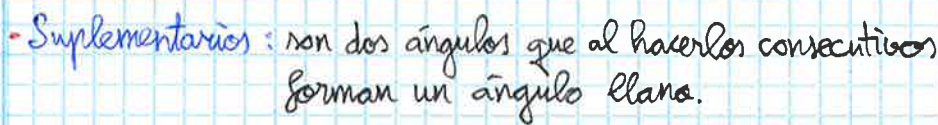 - Suplementarios: son dos ángulos que al hacerlos consecutivos
forman un ángulo llano.